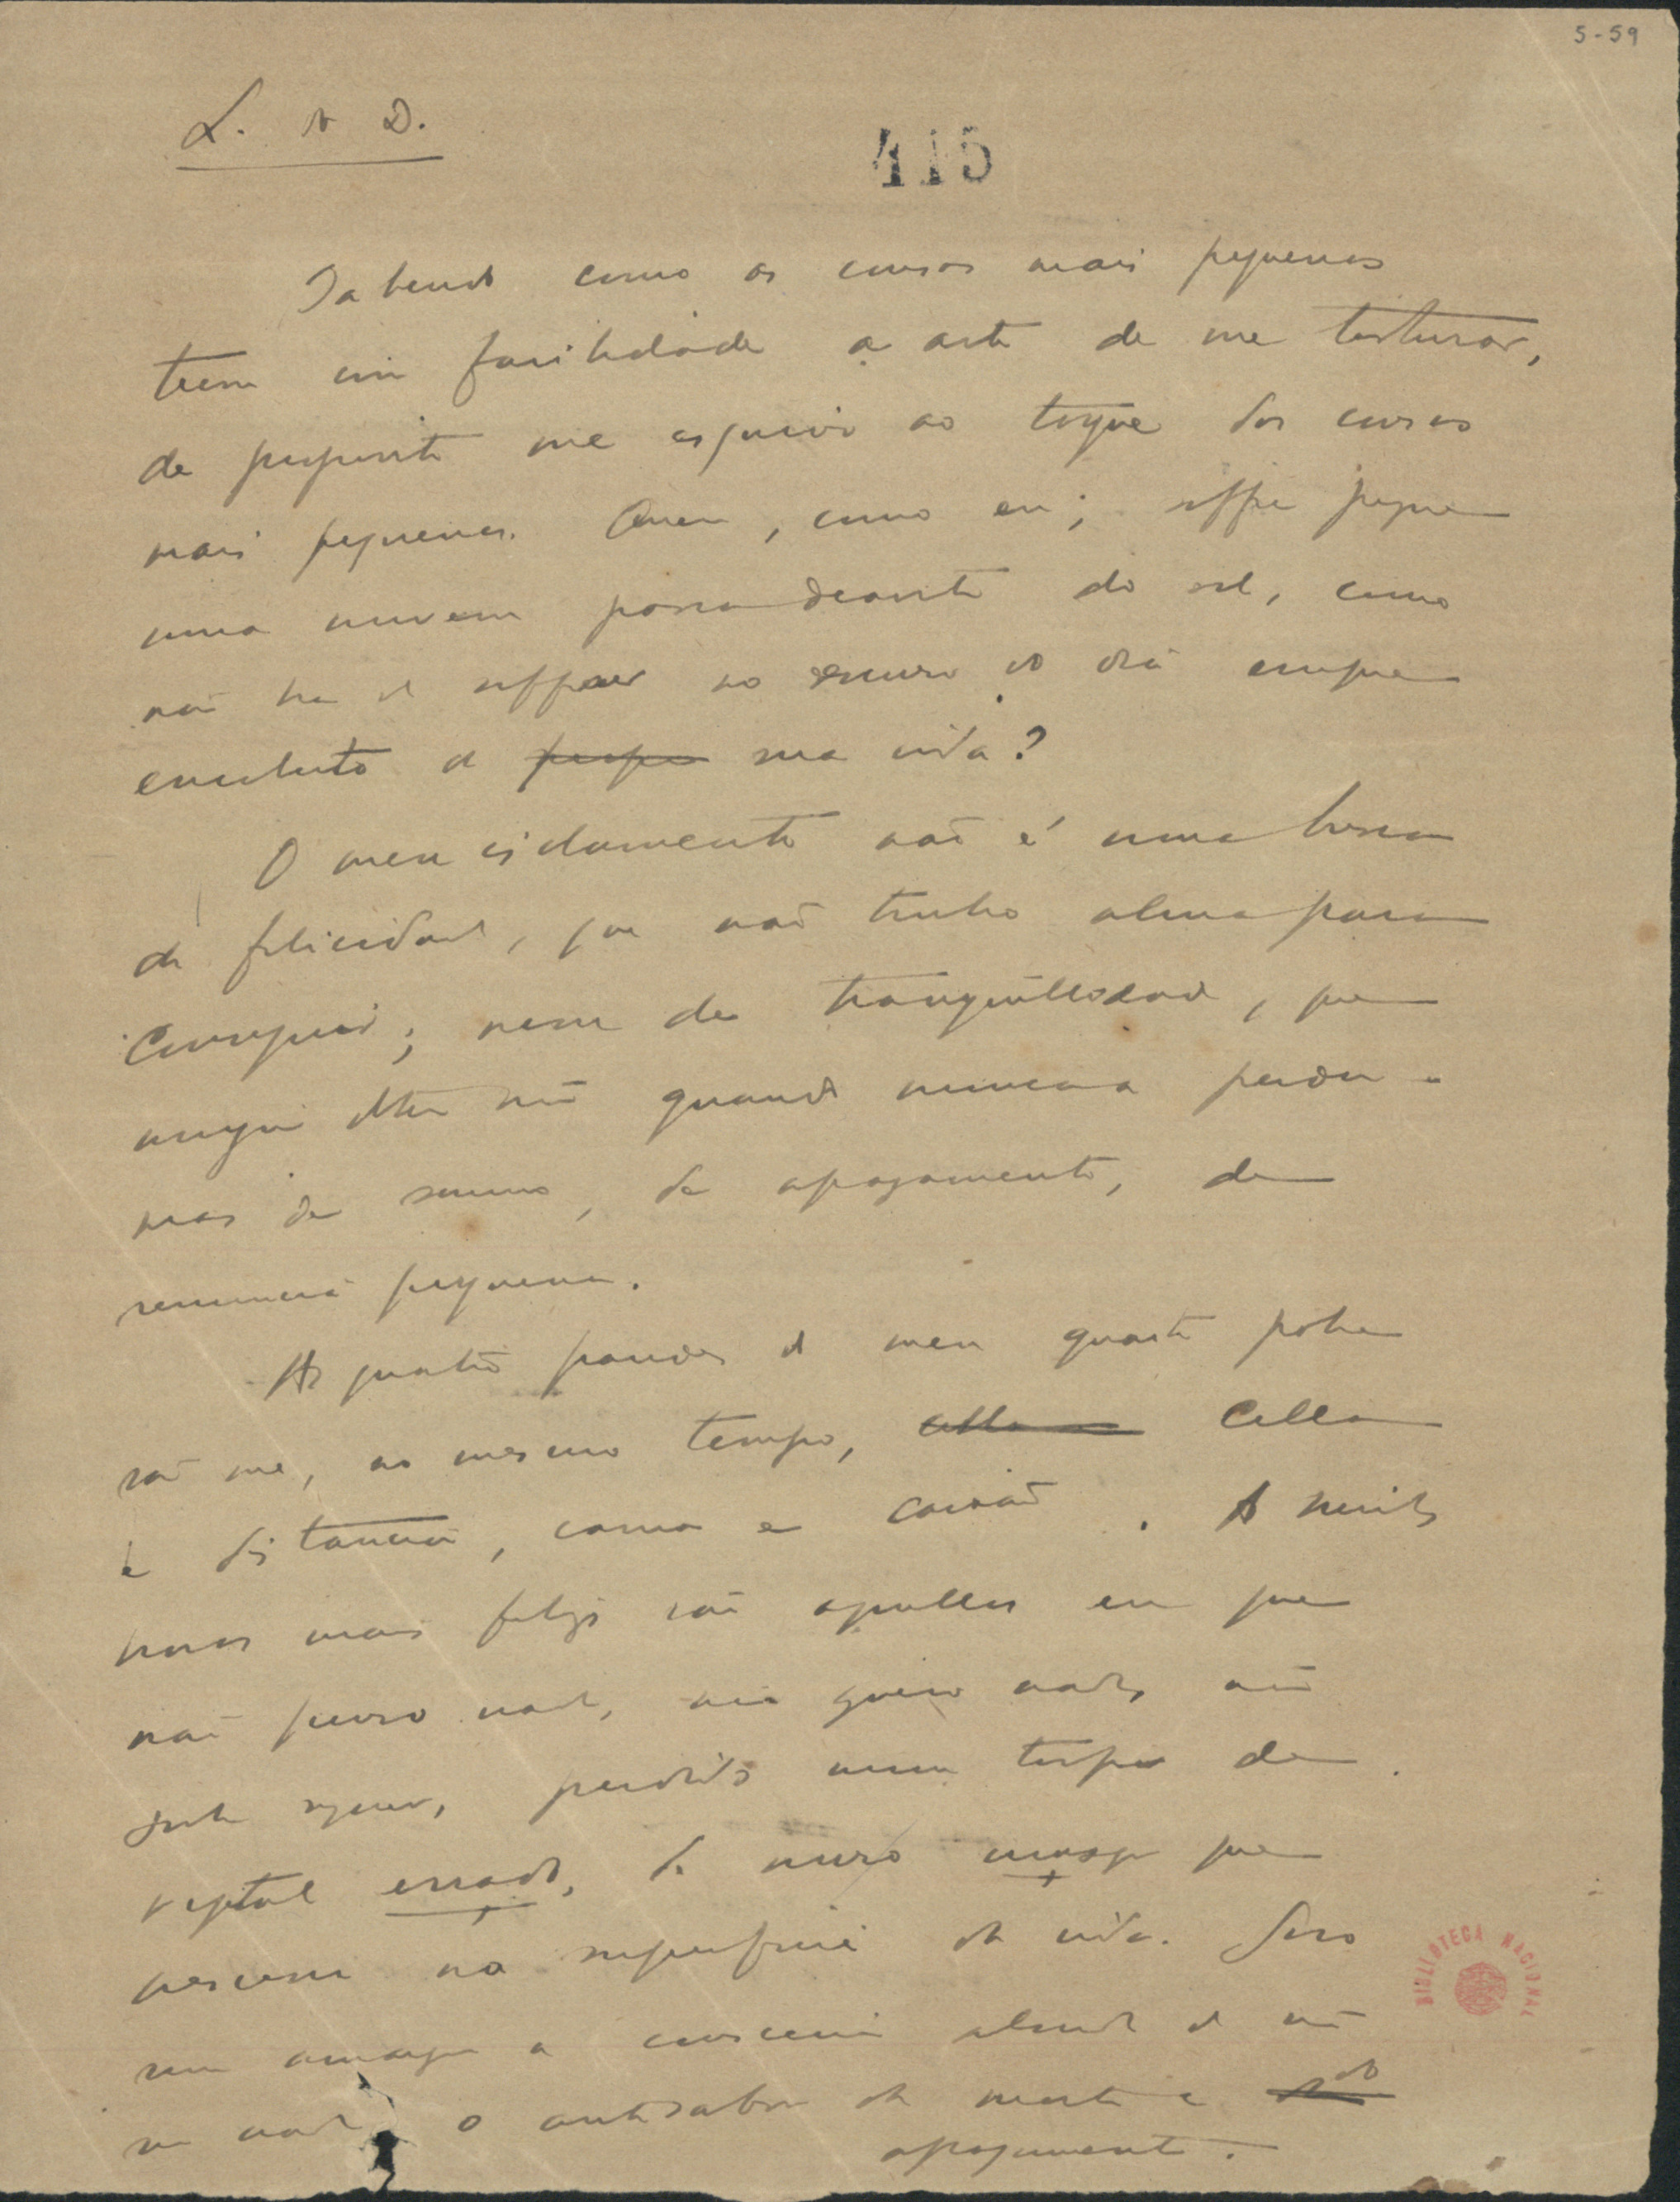 5-59
L. do D.
415
Sabendo como as cousas mais pequenas
teem com facilidade a arte de me torturar,
de proposito me esquivo ao toque das cousas
mais pequenas. Quem, como eu, soffre porque
uma nuvem passa deante do sol, como
não ha de soffrer no escuro do dia sempre
encoberto de sua vida?
O meu isolamento não é uma busca
de felicidade, que não tenho alma para
conseguir; nem de tranquillidade, que
ninguem obtem senão quando nunca a perdeu -
mas de somno, de apagamento, de
renuncia pequena.
As quatro paredes do meu quarto pobre
são-me, ao mesmo tempo, cella cella
e distancia, cama e caixão. As minhas
horas mais felizes são aquellas em que
não penso nada, não quero nada, não
sonho sequer, perdido num torpor de
vegetal errado, de mero musgo que
crescesse na superficie da vida. Goso
sem amargor a consciencia absurda de não
ser nada o ante-sabor da morte e do
apagamento.
BIBLIOTECA NACIONAL